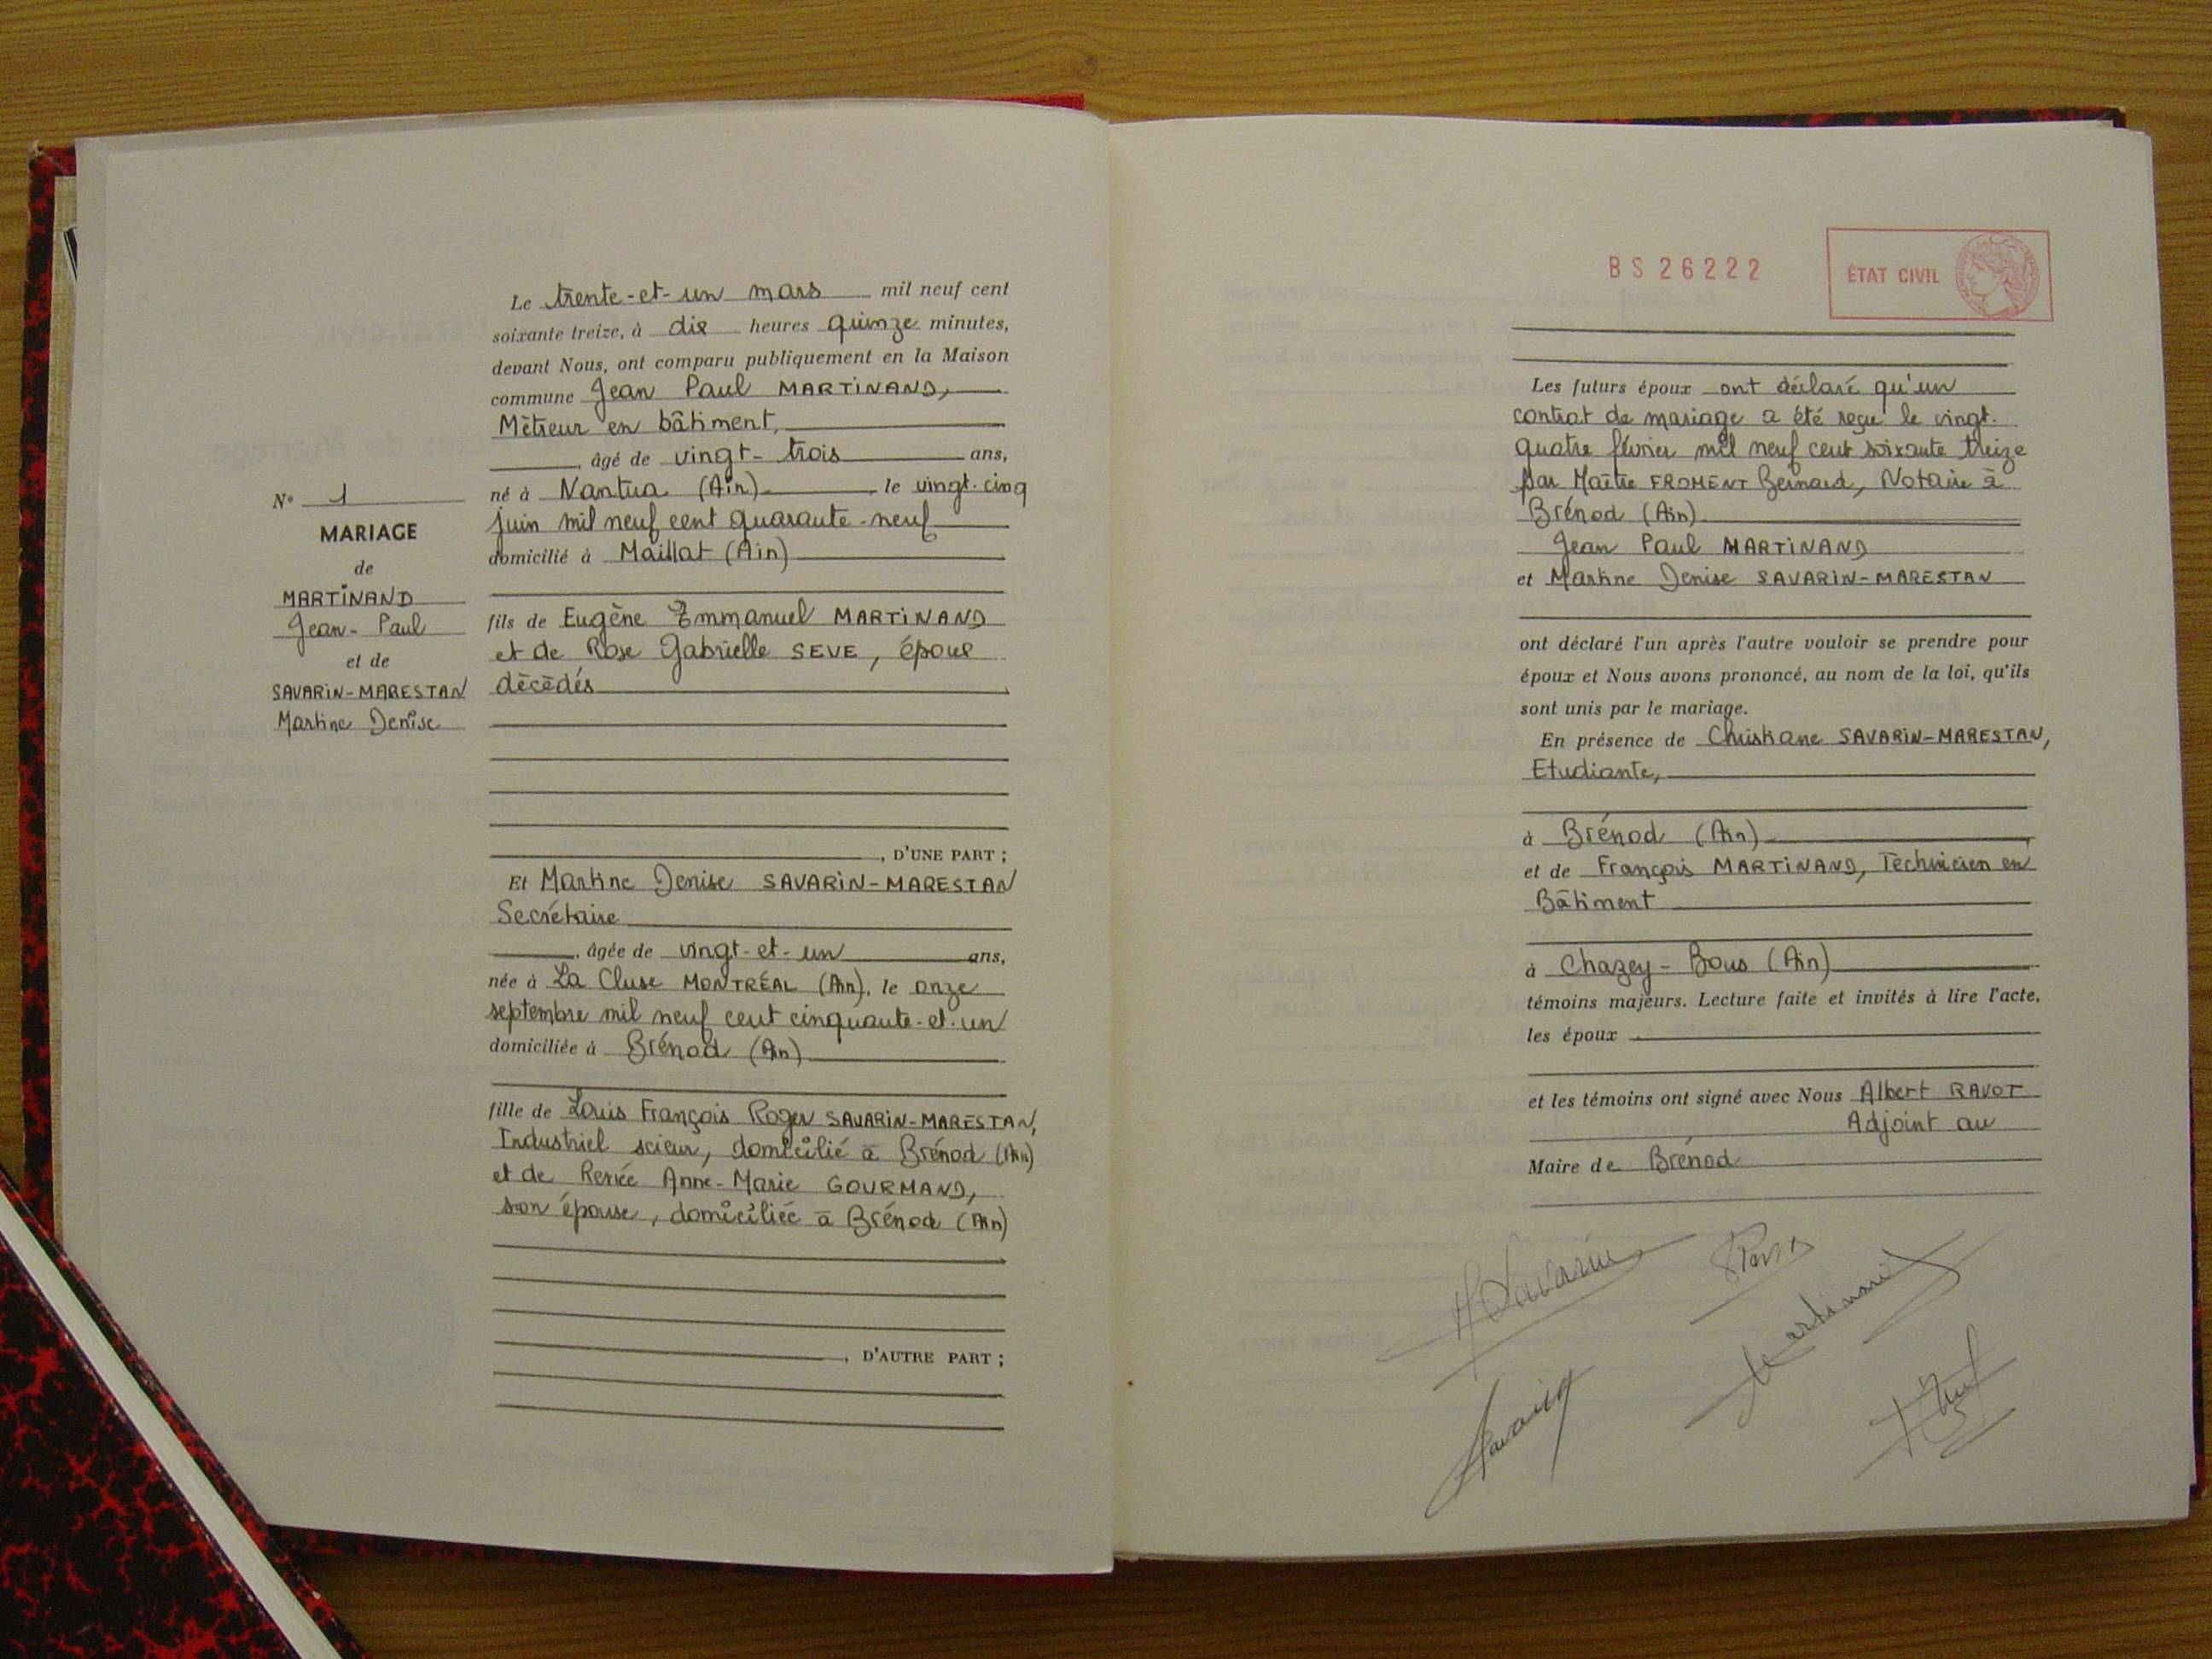 N° 1
MARIAGE
de
MARTINAND
Jean-Paul
et de
SAVARIN-MARESTAN
Martine Denise
Le trente-et-un mars mil neuf cent
soixante treize, à dix heures quinze minutes,
devant Nous, ont comparu publiquement en la Maison
commune Jean Paul MARTINAND,
Mètreur en bâtiment,
, âgé de vingt-trois ans,
né à Nantua (Ain) le vingt-cinq
juin mil neuf cent quarante-neuf
domicilié à Maillat (Ain)
fils de Eugène Emmanuel MARTINAND
et de Rose Gabrielle SEVE, époux
décédés
, D'UNE PART ;
Et Martine Denise SAVARIN-MARESTAN
Secrétaire
, âgée de vingt-et-un ans,
née à La Cluse MONTRÉAL (Ain), le onze
septembre mil neuf cent cinquante-et-un
domiciliée à Brénod (Ain)
fille de Louis François Roger SAVARIN-MARESTAN,
Industriel scieur, domicilié à Brénod (Ain)
et de Renée Anne-Marie GOURMAND,
son épouse, domiciliée à Brénod (Ain)
, D'AUTRE PART ;
BS 26222
ÉTAT CIVIL
Les futurs époux ont déclaré qu'un
contrat de mariage a été reçu le vingt-
quatre février mil neuf cent soixante treize
par Maître FROMENT Bernard, Notaire à
Brénod (Ain)
Jean Paul MARTINAND
et Martine Denise SAVARIN-MARESTAN
ont déclaré l'un après l'autre vouloir se prendre pour
époux et Nous avons prononcé, au nom de la loi, qu'ils
sont unis par le mariage.
En présence de Christiane SAVARIN-MARESTAN,
Etudiante,
à Brénod (Ain)
et de François MARTINAND, Technicien en
Bâtiment
à Chazey-Bons (Ain)
témoins majeurs. Lecture faite et invités à lire l'acte,
les époux
et les témoins ont signé avec Nous Albert RAVOT
Adjoint au
Maire de Brénod
Savarin
Martinand
Savarin